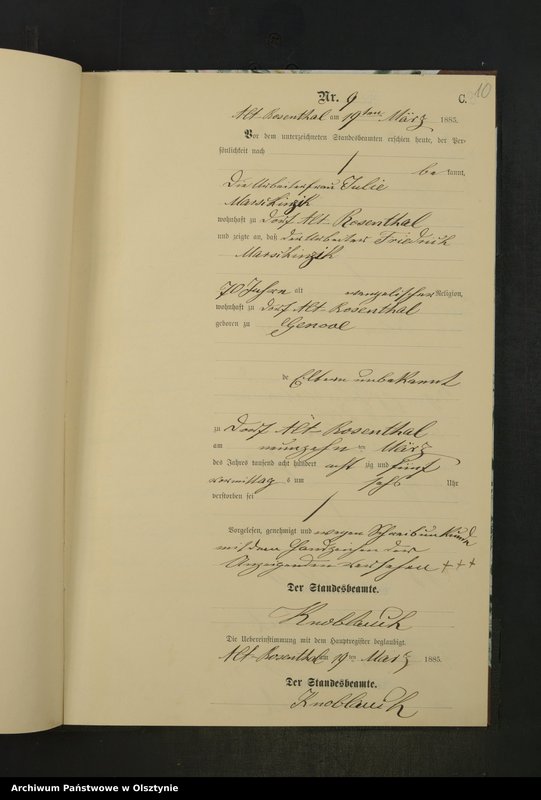 10
Nr. 9
C.
Alt-Rosenthal am 19ten März 1885.
Vor dem unterzeichneten Standesbeamten erschien heute, der Per-
sönlichkeit nach
be kannt,
die Arbeiterfrau Julie
Marsikinzik
wohnhaft zu Dorf Alt-Rosenthal
und zeigte an, daß der Arbeiter Friedrich
Marsikinzik
70 Jahre alt evangelischer Religion,
wohnhaft zu Dorf Alt-Rosenthal
geboren zu
de Eltern unbekannt
zu Dorf Alt-Rosenthal
am neunzehn ten März
des Jahres tausend acht hundert acht zig und fünf
vormittag s um sechs Uhr
verstorben sei
Vorgelesen, genehmigt und wegen Schreibunkunde
mit dem Handzeichen der
Anzeigenden versehen +++
Der Standesbeamte.
Knoblauch
Die Uebereinstimmung mit dem Hauptregister beglaubigt.
Alt-Rosenthal am 19ten März 1885.
Der Standesbeamte.
Knoblauch
Archiwum Państwowe w Olsztynie